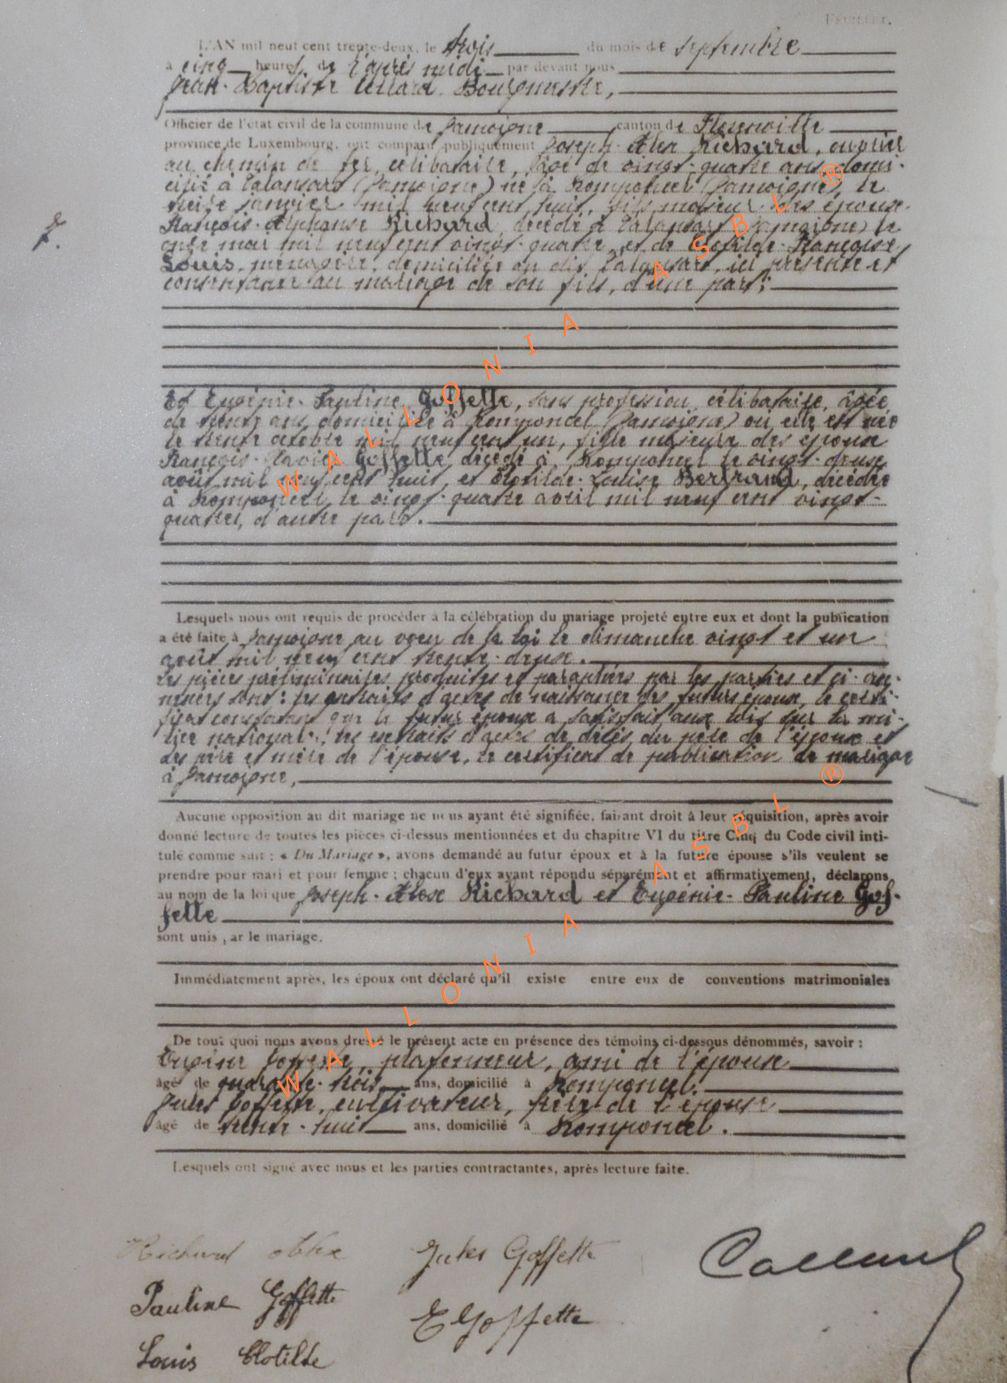 FEUILLET.
L'AN mil neuf cent trente-deux, le trois du mois de septembre
à cinq heures de l'après midi par devant nous
Jean-Baptiste Collard, Bourgmestre,
Officier de l'état civil de la commune de Jamoigne canton de Florenville
province de Luxembourg, ont comparu publiquement Joseph-Alex Richard, ouvrier
au chemin de fer, célibataire, âgé de vingt-quatre ans, domi-
cilié à Valansart (Jamoigne) né à Romponcel (Jamoigne) le
treize janvier mil neuf cent huit, fils majeur des époux
François-Alphonse Richard, décédé à Valansart (Jamoigne) le
onze mai mil neuf cent vingt-quatre, et de Clotilde-Françoise
Louis, ménagère, domiciliée au dit Valansart, ici présente et
consentante au mariage de son fils, d'une part;
7.
Et Eugénie-Pauline Goffette, sans profession, célibataire, âgée
de trente ans, domiciliée à Romponcel (Jamoigne) où elle est née
le trente octobre mil neuf cent un, fille majeure des époux
François-Xavier Goffette, décédé à Romponcel le vingt-deux
août mil neuf cent huit, et Clotilde-Louise Bertrand, décédée
à Romponcel le vingt-quatre avril mil neuf cent vingt-
quatre, d'autre part.
Lesquels nous ont requis de procéder à la célébration du mariage projeté entre eux et dont la publication
a été faite à Jamoigne au vœu de la loi le dimanche vingt et un
août mil neuf cent trente-deux.
Les pièces préliminaires produites et paraphées par les parties et ci-an-
nexées sont: les extraits d'actes de naissance des futurs époux, le certi-
ficat constatant que le futur époux a satisfait aux lois sur la mi-
lice nationale; les extraits d'actes de décès du père de l'époux et
des père et mère de l'épouse, le certificat de publication de mariage
à Jamoigne,
Aucune opposition au dit mariage ne nous ayant été signifiée, faisant droit à leur réquisition, après avoir
donné lecture de toutes les pièces ci-dessus mentionnées et du chapitre VI du titre Cinq du Code civil inti-
tulé comme suit : « Du Mariage », avons demandé au futur époux et à la future épouse s'ils veulent se
prendre pour mari et pour femme ; chacun d'eux ayant répondu séparément et affirmativement, déclarons
au nom de la loi que Joseph-Alex Richard et Eugénie-Pauline Gof-
fette
sont unis par le mariage.
Immédiatement après, les époux ont déclaré qu'il existe entre eux de conventions matrimoniales
De tout quoi nous avons dressé le présent acte en présence des témoins ci-dessous dénommés, savoir :
Goffette, plafonneur, ami de l'époux
âgé de quarante-trois ans, domicilié à Romponcel.
Jules Goffette, cultivateur, frère de l'épouse
âgé de trente-huit ans, domicilié à Romponcel.
Lesquels ont signé avec nous et les parties contractantes, après lecture faite.
Richard Alex
Jules Goffette
Collard
Pauline Goffette
E Goffette
Louis Clotilde
WALLONIA ASBL ®
WALLONIA ASBL ®